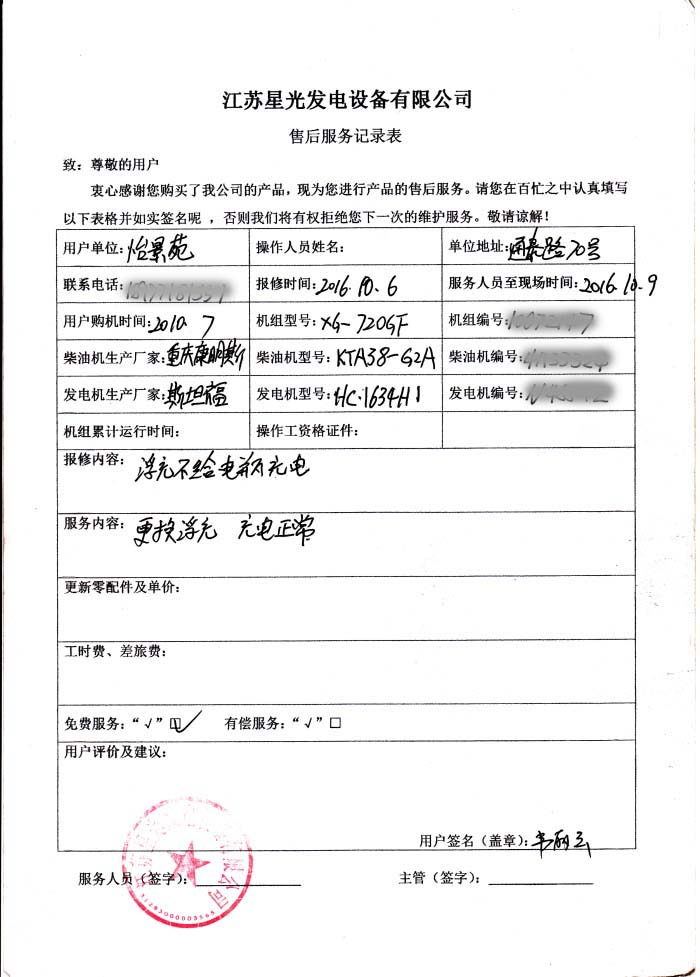 江苏星光发电设备有限公司
售后服务记录表
致：尊敬的用户
衷心感谢您购买了我公司的产品，现为您进行产品的售后服务。请您在百忙之中认真填写
以下表格并如实签名呢 ，否则我们将有权拒绝您下一次的维护服务。敬请谅解！
用户单位：怡景苑 操作人员姓名： 单位地址：通泰路70号
联系电话： 报修时间：2016.10.6 服务人员至现场时间：2016.10.9
用户购机时间：2010 7 机组型号：XG-720GF 机组编号：
柴油机生产厂家：重庆康明斯 柴油机型号：KTA38-G2A 柴油机编号：
发电机生产厂家：斯坦福 发电机型号：HC.1634H1 发电机编号：
机组累计运行时间： 操作工资格证件：
报修内容：浮充不给电瓶充电
服务内容：更换浮充 充电正常
更新零配件及单价：
工时费、差旅费：
免费服务：“√”□√ 有偿服务：“√”□
用户评价及建议：
用户签名（盖章）：韦丽云
服务人员（签字）： 主管（签字）：